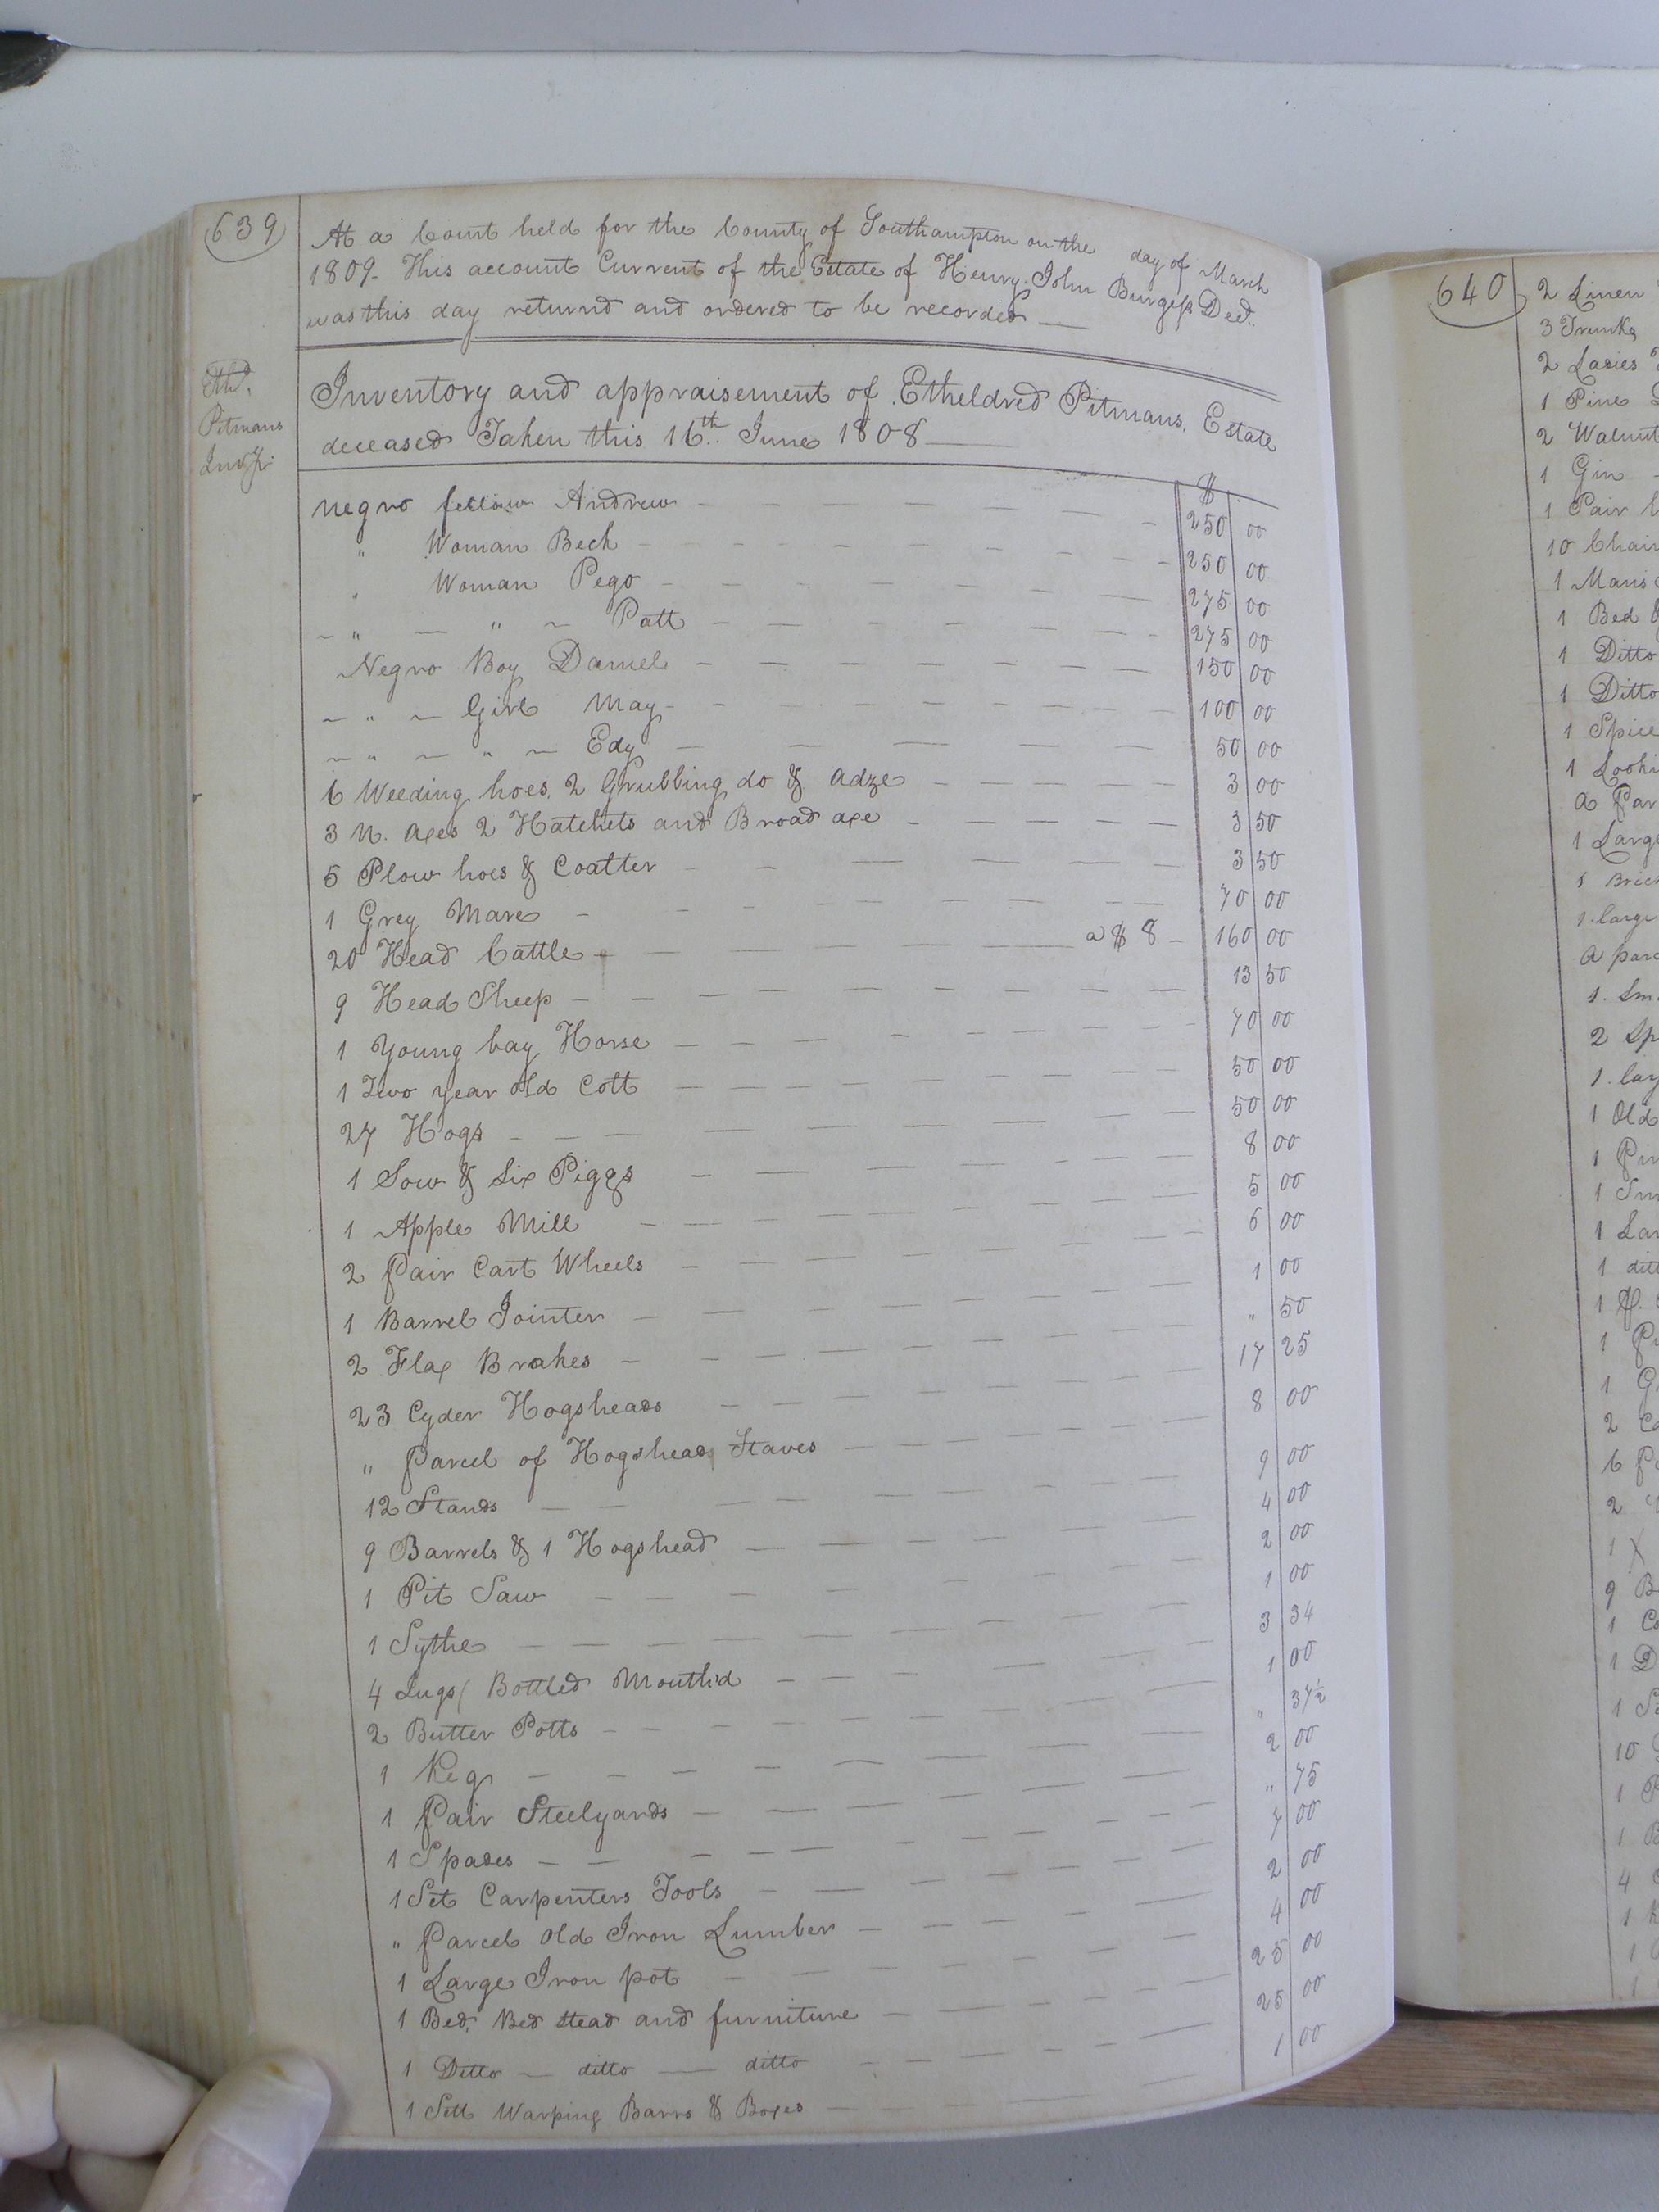 639
At a Court held for the County of Southampton on the day of March
1809. This account Current of the Estate of Henry John Burgess Decd.
was this day returnd and ordered to be recorded
Ethd.
Pitmans
Invy.
Inventory and appraisement of Etheldred Pitmans, Estate
deceased Taken this 16th. June 1808
$
negro fellow Andrew 250 00
" Woman Beck 250 00
" Woman Pego 275 00
" " Patt 275 00
Negro Boy Daniel 150 00
" Girl May 100 00
" " Edy 50 00
6 Weeding hoes, 2 Grubbing do & adze 3 00
3 N. axes 2 Hatchets and Broad axe 3 50
5 Plow hoes & Coatter 3 50
1 Grey Mare 70 00
20 Head Cattle a $ 8 160 00
9 Head Sheep 13 50
1 Young bay Horse 70 00
1 Two year old Colt 50 00
27 Hogs 50 00
1 Sow & Six Piggs 8 00
1 Apple Mill 5 00
2 Pair Cart Wheels 6 00
1 Barrel Jointer 1 00
2 Flax Brakes " 50
23 Cyder Hogsheads 17 25
" Parcel of Hogshead Staves 8 00
12 Stands 9 00
9 Barrels & 1 Hogshead 4 00
1 Pit Saw 2 00
1 Sythe 1 00
4 Jugs ( Bottled Mouthd 3 34
2 Butter Potts 1 00
1 Keg " 37½
1 Pair Steelyards 2 00
1 Spades " 75
1 Set Carpenters Tools 7 00
" Parcel Old Iron Lumber 2 00
1 Large Iron pot 4 00
1 Bed, Bed stead and furniture 25 00
1 Ditto ditto ditto 25 00
1 Sett Warping Barrs & Boxes 1 00
640
2 Linen
3 Trunks
2 Ladies
1 Pine
2 Walnut
1 Gin
1 Pair
10 Chair
1 Mans
1 Bed
1 Ditto
1 Ditto
1 Spice
1 Looki
a Par
1 Large
1 Brick
1 large
a parc
1 Sm
2 Sp
1 lar
1 Old
1 Pin
1 Sm
1 Lar
1 ditt